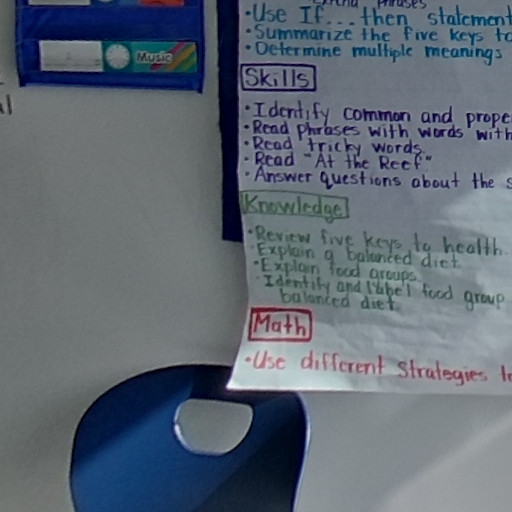 phrases
• Use If...then statement
• Summarize the five keys to
• Determine multiple meanings
Music
Skills
al
• Identify common and prope
• Read phrases with words with
• Read tricky words.
• Read "At the Reef"
• Answer questions about the s
Knowledge
• Review five keys to health.
• Explain a balanced diet
• Explain food groups.
• Identify and label food group
balanced diet.
Math
• Use different strategies to